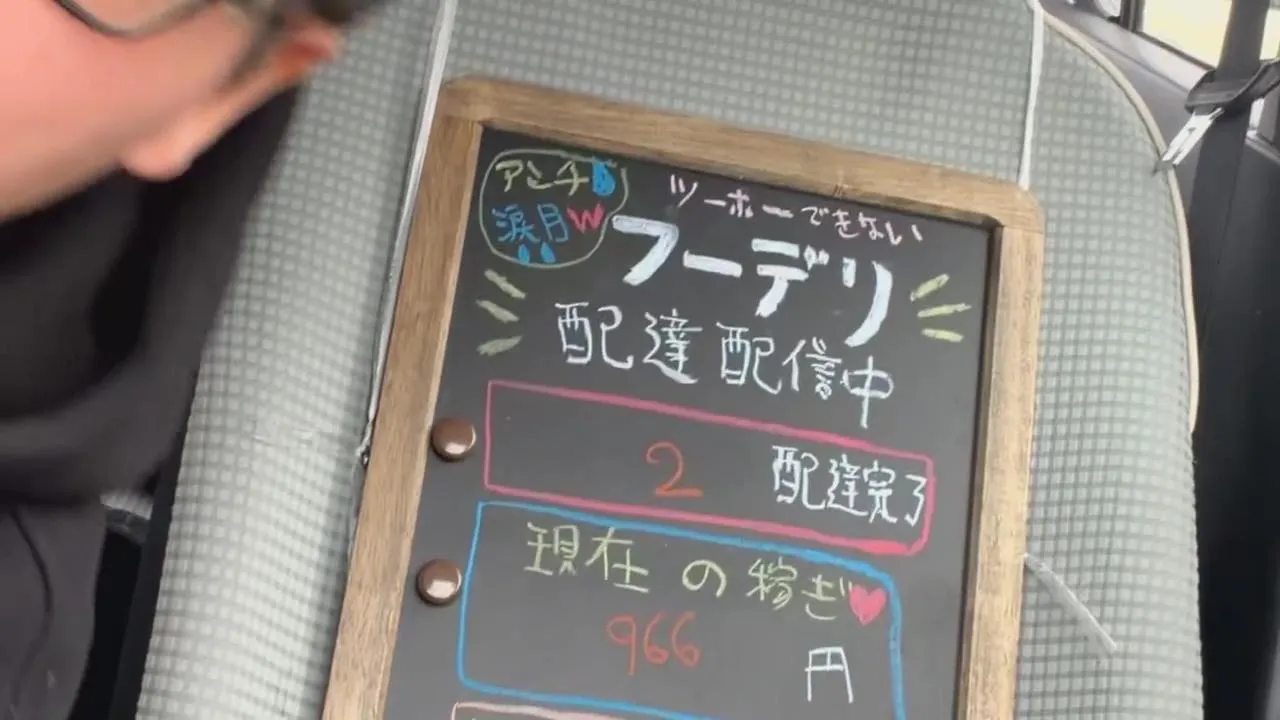 アンチ
涙月w
ツーホーできない
フーデリ
配達配信中
2 配達完了
現在の稼ぎ♥
966円